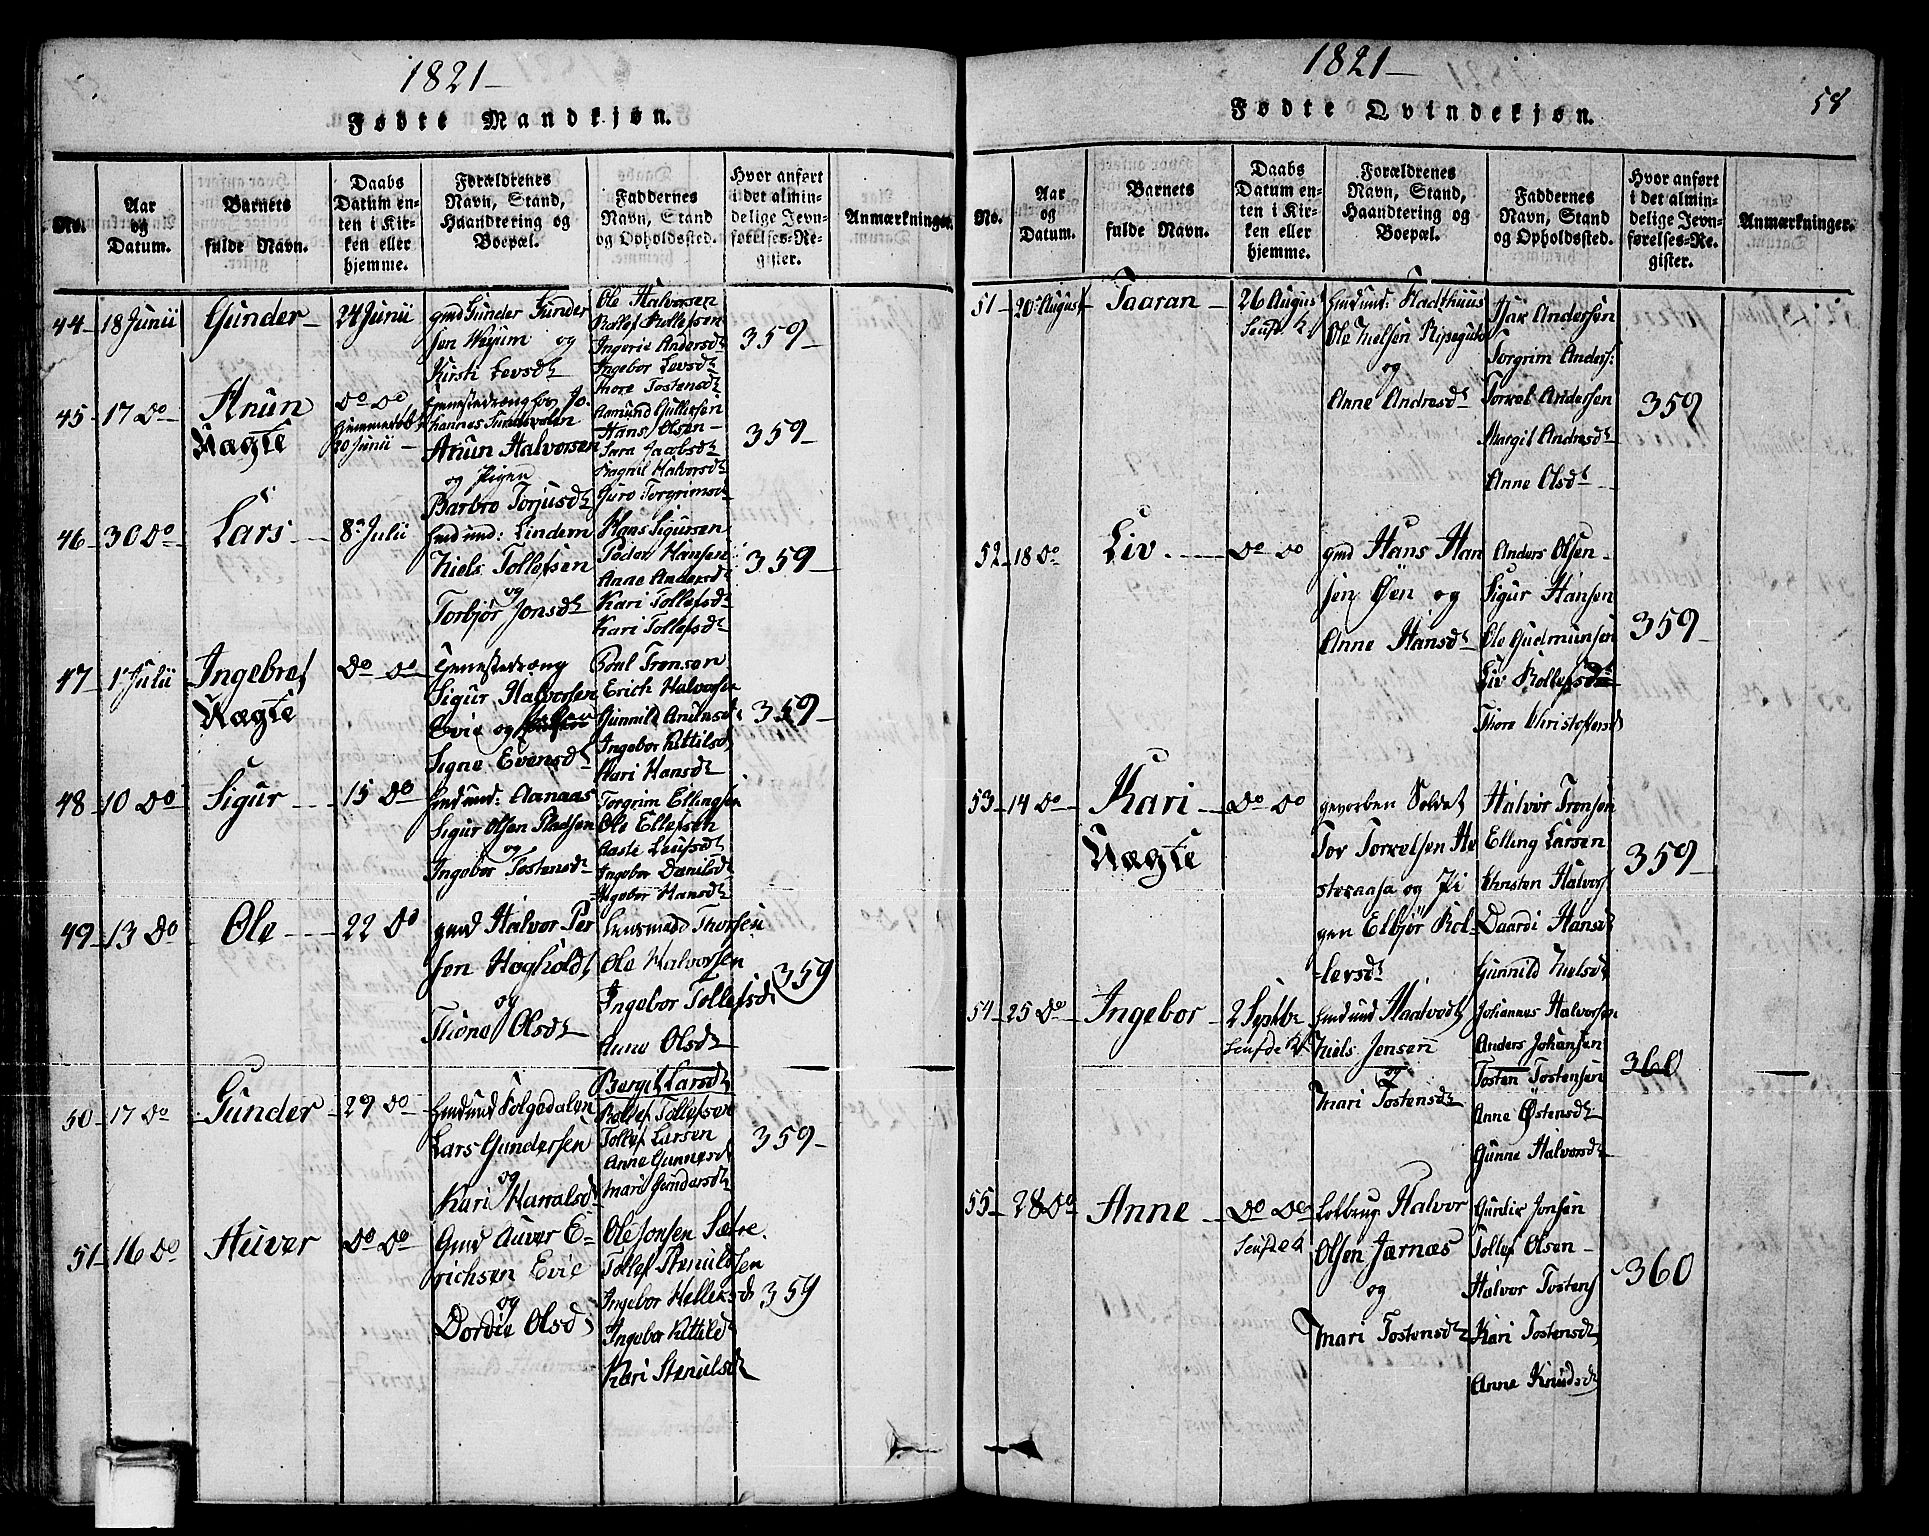 1821
Fødte Mandkjøn.
No.
Aar og Datum.
Barnets fulde Navn.
Daabs Datum enten i Kirken eller hjemme.
Forældrenes Navn, Stand, Haandtering og Boepæl.
Faddernes Navn, Stand og Opholdssted.
Hvor anført i det almindelige Jevnførelses-Register.
Anmærkninger.
44
18 Junii
Gunder
24 Junii
gmd Gunder Gunder
sen og
Kirsti Levsdt
Ole Halvorsen
Rollef Rollefsen
Ingerie Andersdt
Ingebor Levsdt
Thore Tostensdt
359
45
17 Do
Anun
Uægte
Do Do
20 Junii
hannes
Anun Halvorsen
og Pigen
Barbro Torjusdt
Aamund Gullefsen
Hans Olsen
Sara Jacobsdt
Halvorsdt
Guro Torgrimsdt
359
46
30 Do
Lars
8 Julii
Lindem
Niels Tollefsen
og
Torbjør Jonsdt
Hans Sigursen
Peder Hansen
Anne Andersdt
Kari Tollefsdt
Kari Tollefsdt
359
47
1 Julii
Ingebret
Uægte
Do Do
Sigur Halvorsen
Evie og
Signe Evensdt
Poul Tronsen
Erich Halvorsen
Gunnild Anunsdt
Ingebor Kittilsdt
Kari Hansdt
359
48
10 Do
Sigur
15 Do
Aanaas
Sigur Olsen Pladsen
og
Ingebor Tostensdt
Torgrim Ellingsen
Ole Ellefsen
Aaste
Ingebor Danilsdt
Ingebor Hansdt
359
49
13 Do
Ole
22 Do
gmd Halvor Per
sen Høgholdt
og
Thone Olsdt
Lensmand Thorsen
Ole Halvorsen
Ingebor Tollefsdt
Anne Olsdt
Bergit Larsdt
359
50
17 Do
Gunder
29 Do
Lars Gundersen
og
Kari Haralsdt
Rollef Tollefsen
Tollef Larsen
Anne Gunnersdt
Mari Gundersdt
359
51
16 Do
Auver
Do Do
Gmd Auver E-
richsen Evie
og
Dordie Olsdt
Ole Jonsen Sætre
Tollef Stenulsen
Ingebor Helleksdt
Ingebor Kittilsdt
Kari Stenulsdt
359
1821
58
Fødte Qvindekjøn.
No.
Aar og Datum.
Barnets fulde Navn.
Daabs Datum enten i Kirken eller hjemme.
Forældrenes Navn, Stand, Haandtering og Boepæl.
Faddernes Navn, Stand og Opholdssted.
Hvor anført i det almindelige Jevnførelses-Register.
Anmærkninger.
51
20 August
Taaran
26 August
Ole Nielsen
og
Anne Andresdt
Isak Andersen
Torgrim Anders:
Torkel Andersen
Margit Andresdt
Anne Olsdt
359
52
18 Do
Liv
Do Do
gmd Hans Han
sen Øen og
Anne Hansdt
Anders Olsen
Sigur Hansen
Ole Gudmunsen
Liv Rollefsdt
Thore Christophersdt
359
53
14 Do
Kari
Uægte
Do Do
gevorben Soldat
Tor Torkelsen He
steraasa og Pi
gen Elbjør Rol-
lefsdt
Halvor Tronsen
Elling Larsen
Christen Halvors
Daardi Hansdt
Gunnild Nielsdt
359
54
25 Do
Ingebor
2 Septbr
Niels Jensen
og
Mari Tostensdt
Johannes Halvorsen
Anders Johansen
Tosten Tostensen
Anne Østensdt
Gunne Halvorsdt
360
55
28 Do
Anne
Do Do
Halvor
Olsen Jernæs
og
Mari Tostensdt
Jonsen
Tollef Olsen
Halvor Tostens
Kari Tostensdt
Anne Knudsdt
360